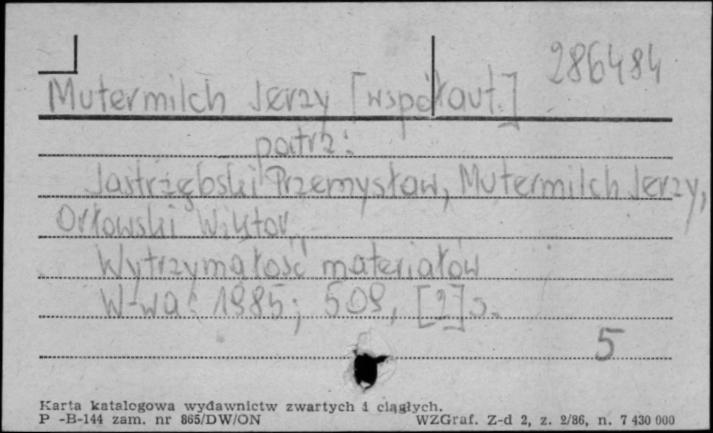 286484
Mutermilch Jerzy [współaut.]
patrz:
Jastrzębski Przemysław, Mutermilch Jerzy,
Orłowski Wiktor
Wytrzymałość materiałów
W-wa: 1985; 509, [2]s.
5
Karta katalogowa wydawnictw zwartych i ciągłych.
P -B-144 zam. nr 865/DW/ON WZGraf. Z-d 2, z. 2/86, n. 7 430 000